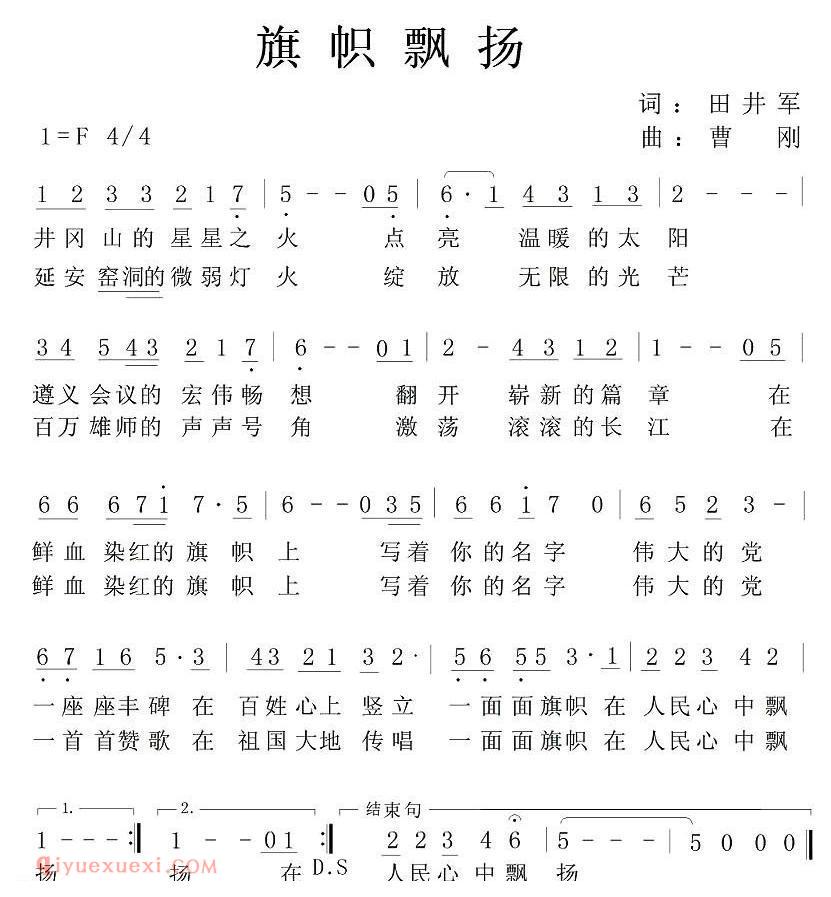 旗帜飘扬
词：田井军
1=F 4/4
曲：曹刚
1 2 3 3 2 1 7 | 5 - - 0 5 | 6 · 1 4 3 1 3 | 2 - - - |
井冈山的星星之火 点亮 温暖的太阳
延安窑洞的微弱灯火 绽放 无限的光芒
3 4 5 4 3 2 1 7 | 6 - - 0 1 | 2 - 4 3 1 2 | 1 - - 0 5 |
遵义会议的宏伟畅想 翻开 崭新的篇章 在
百万雄师的声声号角 激荡 滚滚的长江 在
6 6 6 7 i 7 · 5 | 6 - - 0 3 5 | 6 6 i 7 0 | 6 5 2 3 - |
鲜血染红的旗帜上 写着你的名字 伟大的党
鲜血染红的旗帜上 写着你的名字 伟大的党
6 7 1 6 5 · 3 | 4 3 2 1 3 2 · | 5 6 5 5 3 · 1 | 2 2 3 4 2 |
一座座丰碑在百姓心上竖立 一面面旗帜在人民心中飘
一首首赞歌在祖国大地传唱 一面面旗帜在人民心中飘
1. 2. 结束句
1 - - - :‖ 1 - - 0 1 :‖ 2 2 3 4 6 | 5 - - - | 5 0 0 0 ‖
D.S
扬 扬 在 人民心中飘 扬
qiyuexuexi.com